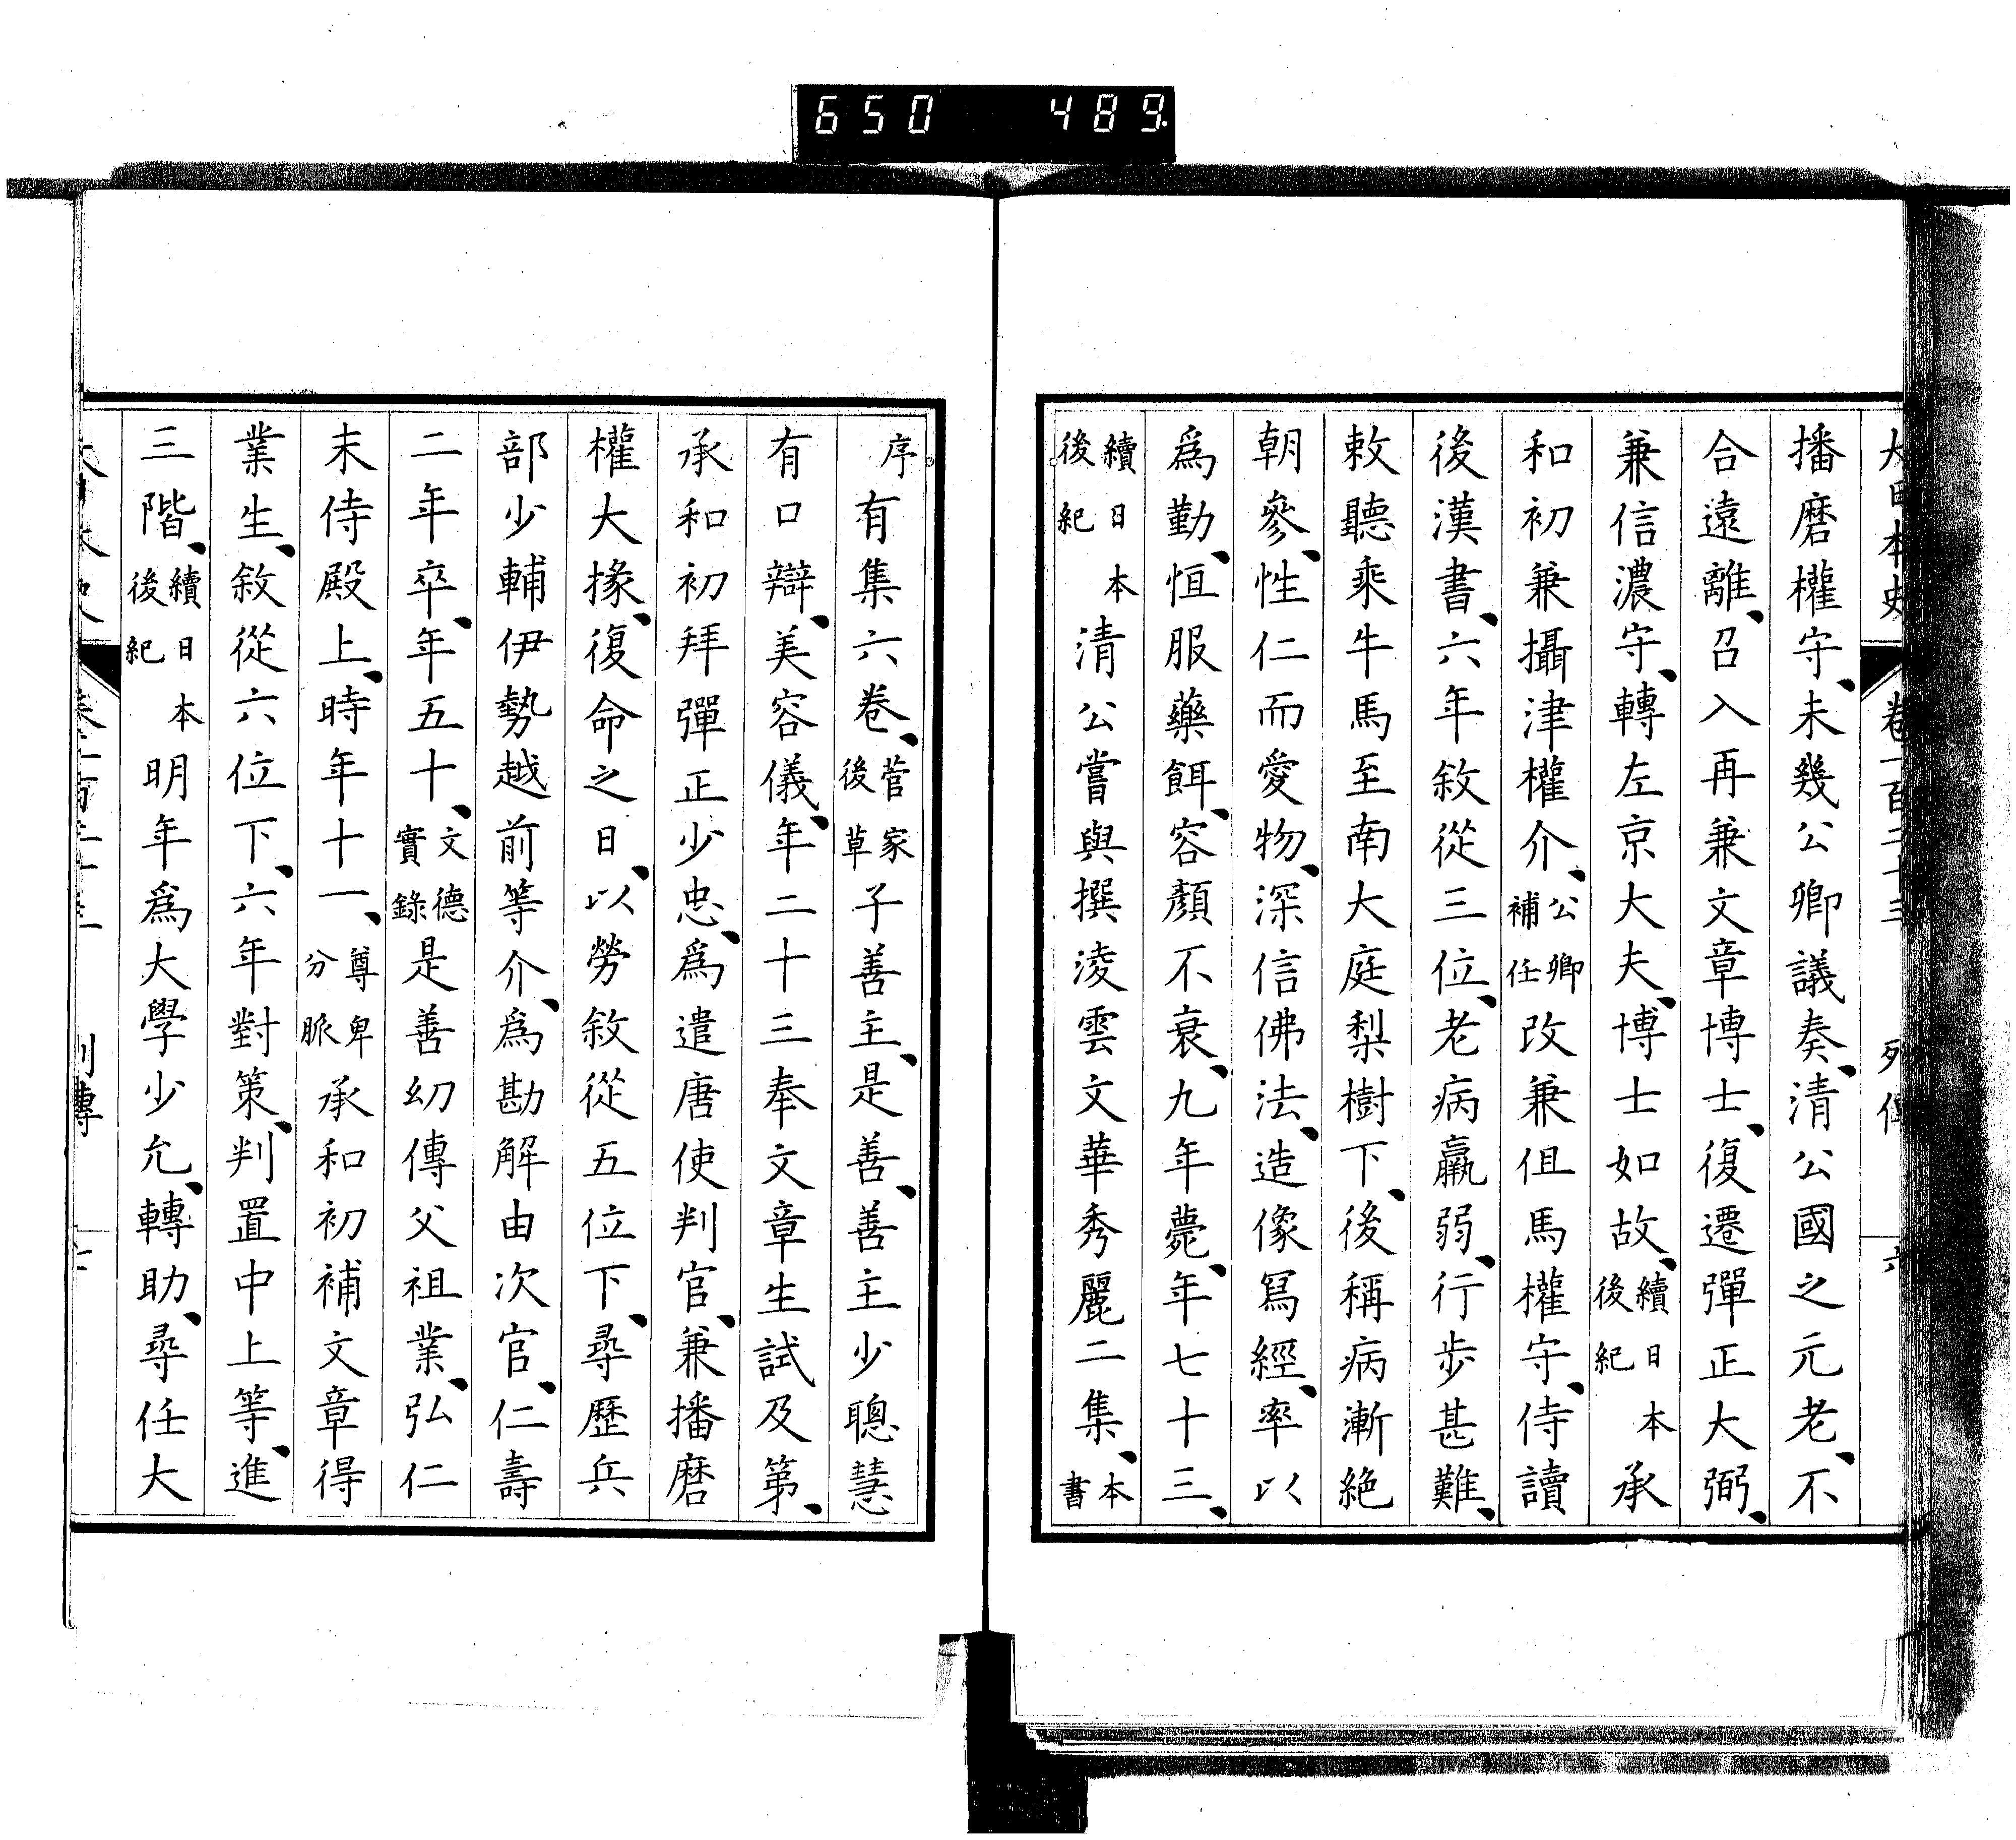 650 489
大日本史 卷一百二十三 列傳 六
播磨權守、未幾公卿議奏、清公國之元老、不
合遠離、召入再兼文章博士、復遷彈正大弼、
兼信濃守、轉左京大夫、博士如故、續日本後紀承
和初兼攝津權介、公卿補任改兼但馬權守、侍讀
後漢書、六年敘從三位、老病羸弱、行步甚難、
敕聽乘牛馬至南大庭梨樹下、後稱病漸絕
朝參、性仁而愛物、深信佛法、造像寫經、率以
爲勤、恒服藥餌、容顏不衰、九年薨、年七十三、
續日本後紀清公嘗與撰淩雲文華秀麗二集、本書
序有集六卷、菅家後草子善主、是善、善主少聰慧
有口辯、美容儀、年二十三奉文章生試及第、
承和初拜彈正少忠、爲遣唐使判官、兼播磨
權大掾、復命之日、以勞敘從五位下、尋歷兵
部少輔伊勢越前等介、爲勘解由次官、仁壽
二年卒、年五十、文德實錄是善幼傳父祖業、弘仁
末侍殿上、時年十一、尊卑分脈承和初補文章得
業生、敘從六位下、六年對策、判置中上等、進
三階、續日本後紀明年爲大學少允、轉助、尋任大
列傳